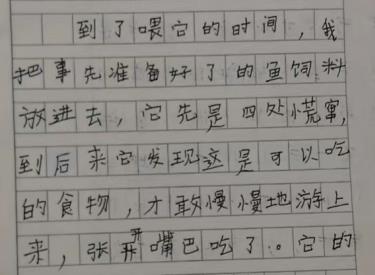 到了喂它的时间，我
把事先准备好了的鱼饲料
放进去，它先是四处慌窜，
到后来它发现这是可以吃
的食物，才敢慢慢地游上
来，张开嘴巴吃了。它的